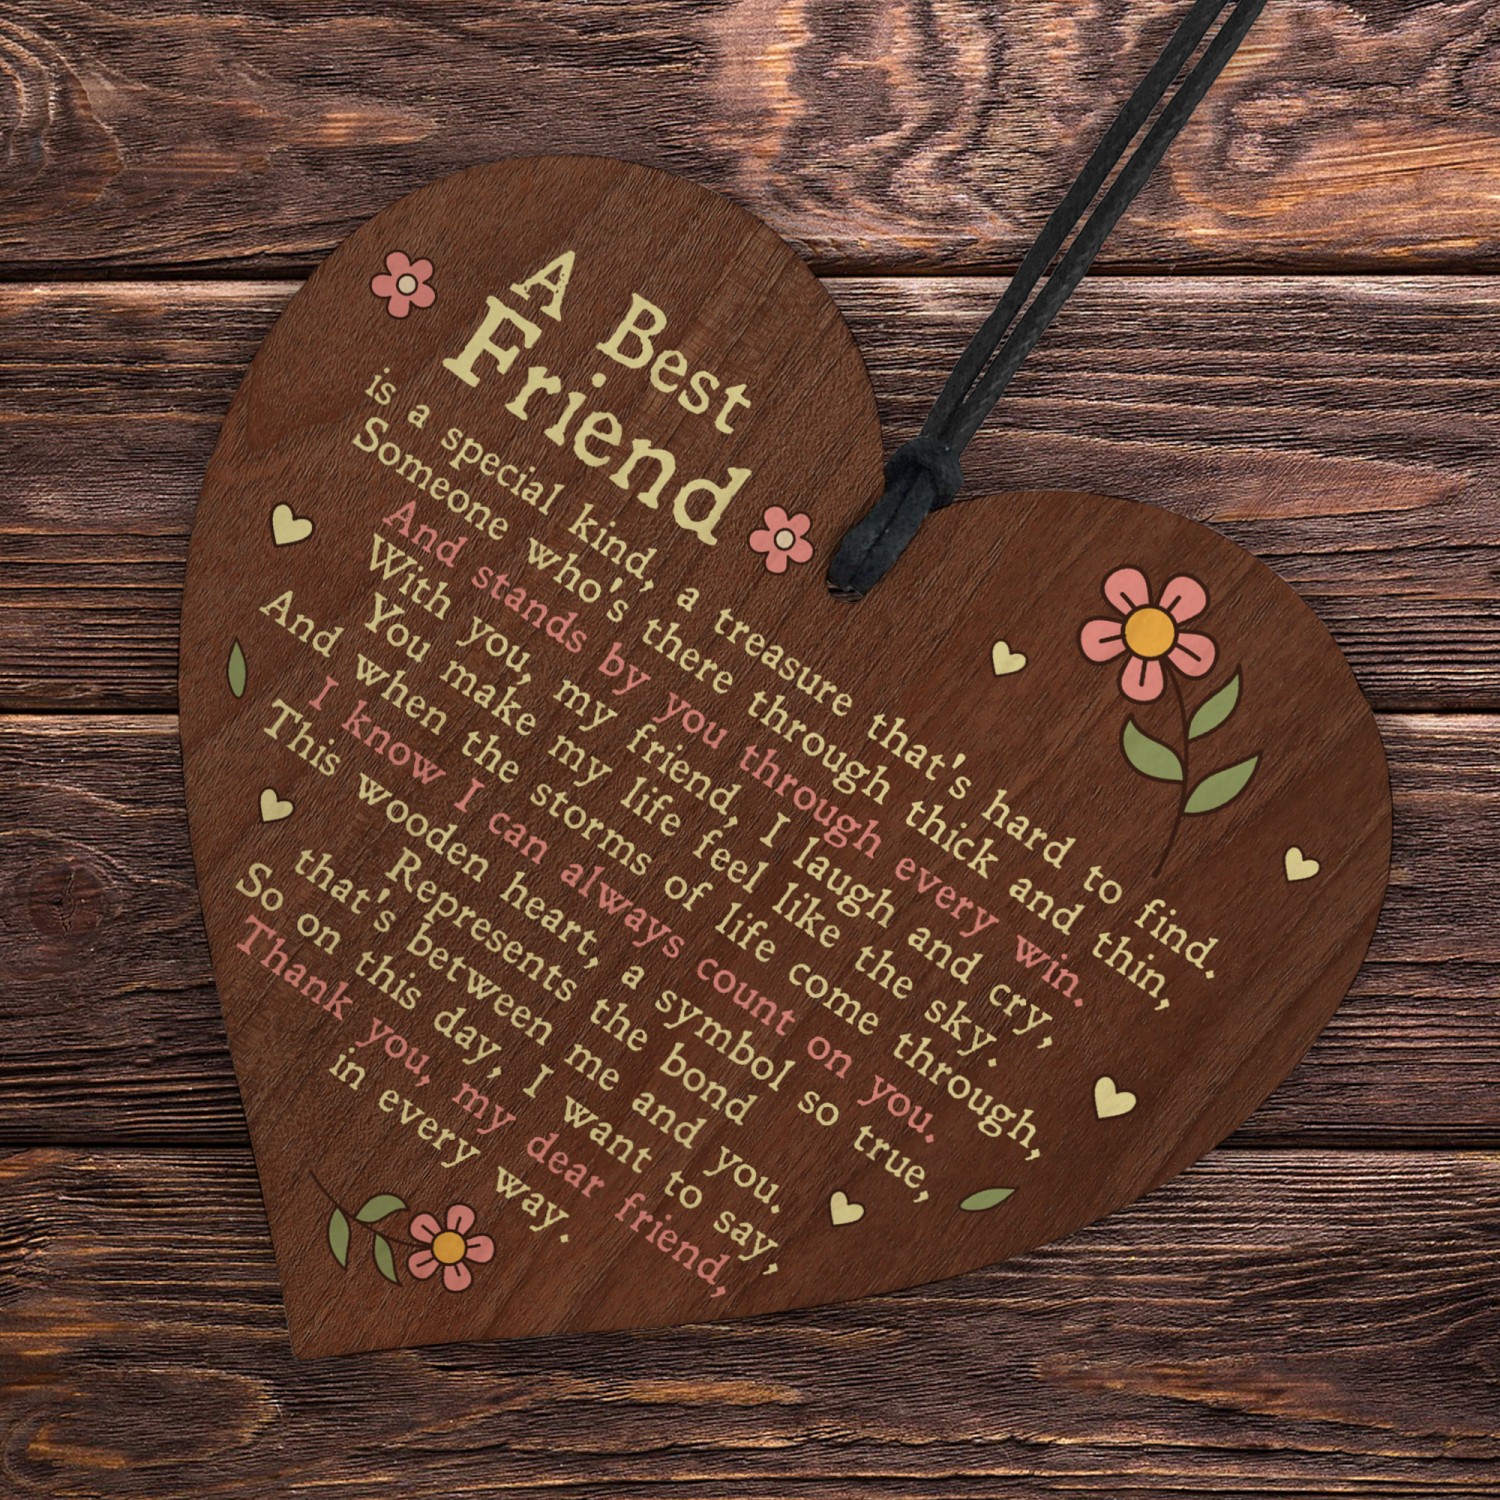 A Best
Friend
is a special kind, a treasure that's hard to find.
Someone who's there through thick and thin,
And stands by you through every win.
With you, my friend, I laugh and cry,
You make my life feel like the sky.
And when the storms of life come through,
I know I can always count on you.
This wooden heart, a symbol so true,
Represents the bond
that's between me and you.
So on this day, I want to say,
Thank you, my dear friend,
in every way.